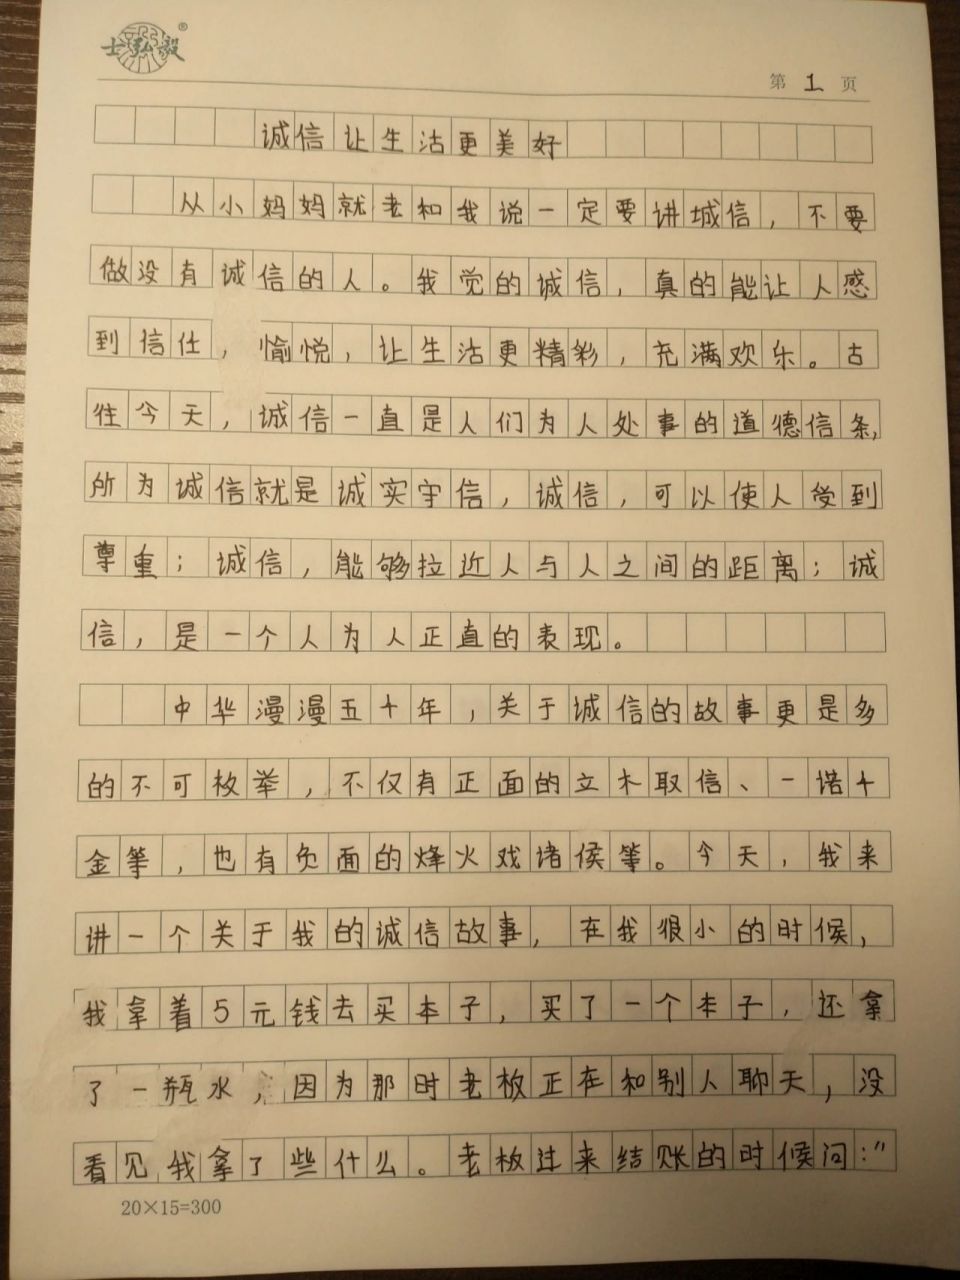 士弘毅®
第 1 页
诚信让生活更美好
从小妈妈就老和我说一定要讲城信，不要
做没有诚信的人。我觉的诚信，真的能让人感
到信任，愉悦，让生活更精彩，充满欢乐。古
往今天，诚信一直是人们为人处事的道德信条，
所为诚信就是诚实守信，诚信，可以使人受到
尊重；诚信，能够拉近人与人之间的距离；诚
信，是一个人为人正直的表现。
中华漫漫五千年，关于诚信的故事更是多
的不可枚举，不仅有正面的立木取信、一诺千
金等，也有负面的烽火戏诸侯等。今天，我来
讲一个关于我的诚信故事，在我很小的时候，
我拿着5元钱去买本子，买了一个本子，还拿
了一瓶水，因为那时老板正在和别人聊天，没
看见我拿了些什么。老板过来结账的时候问：“
20×15=300